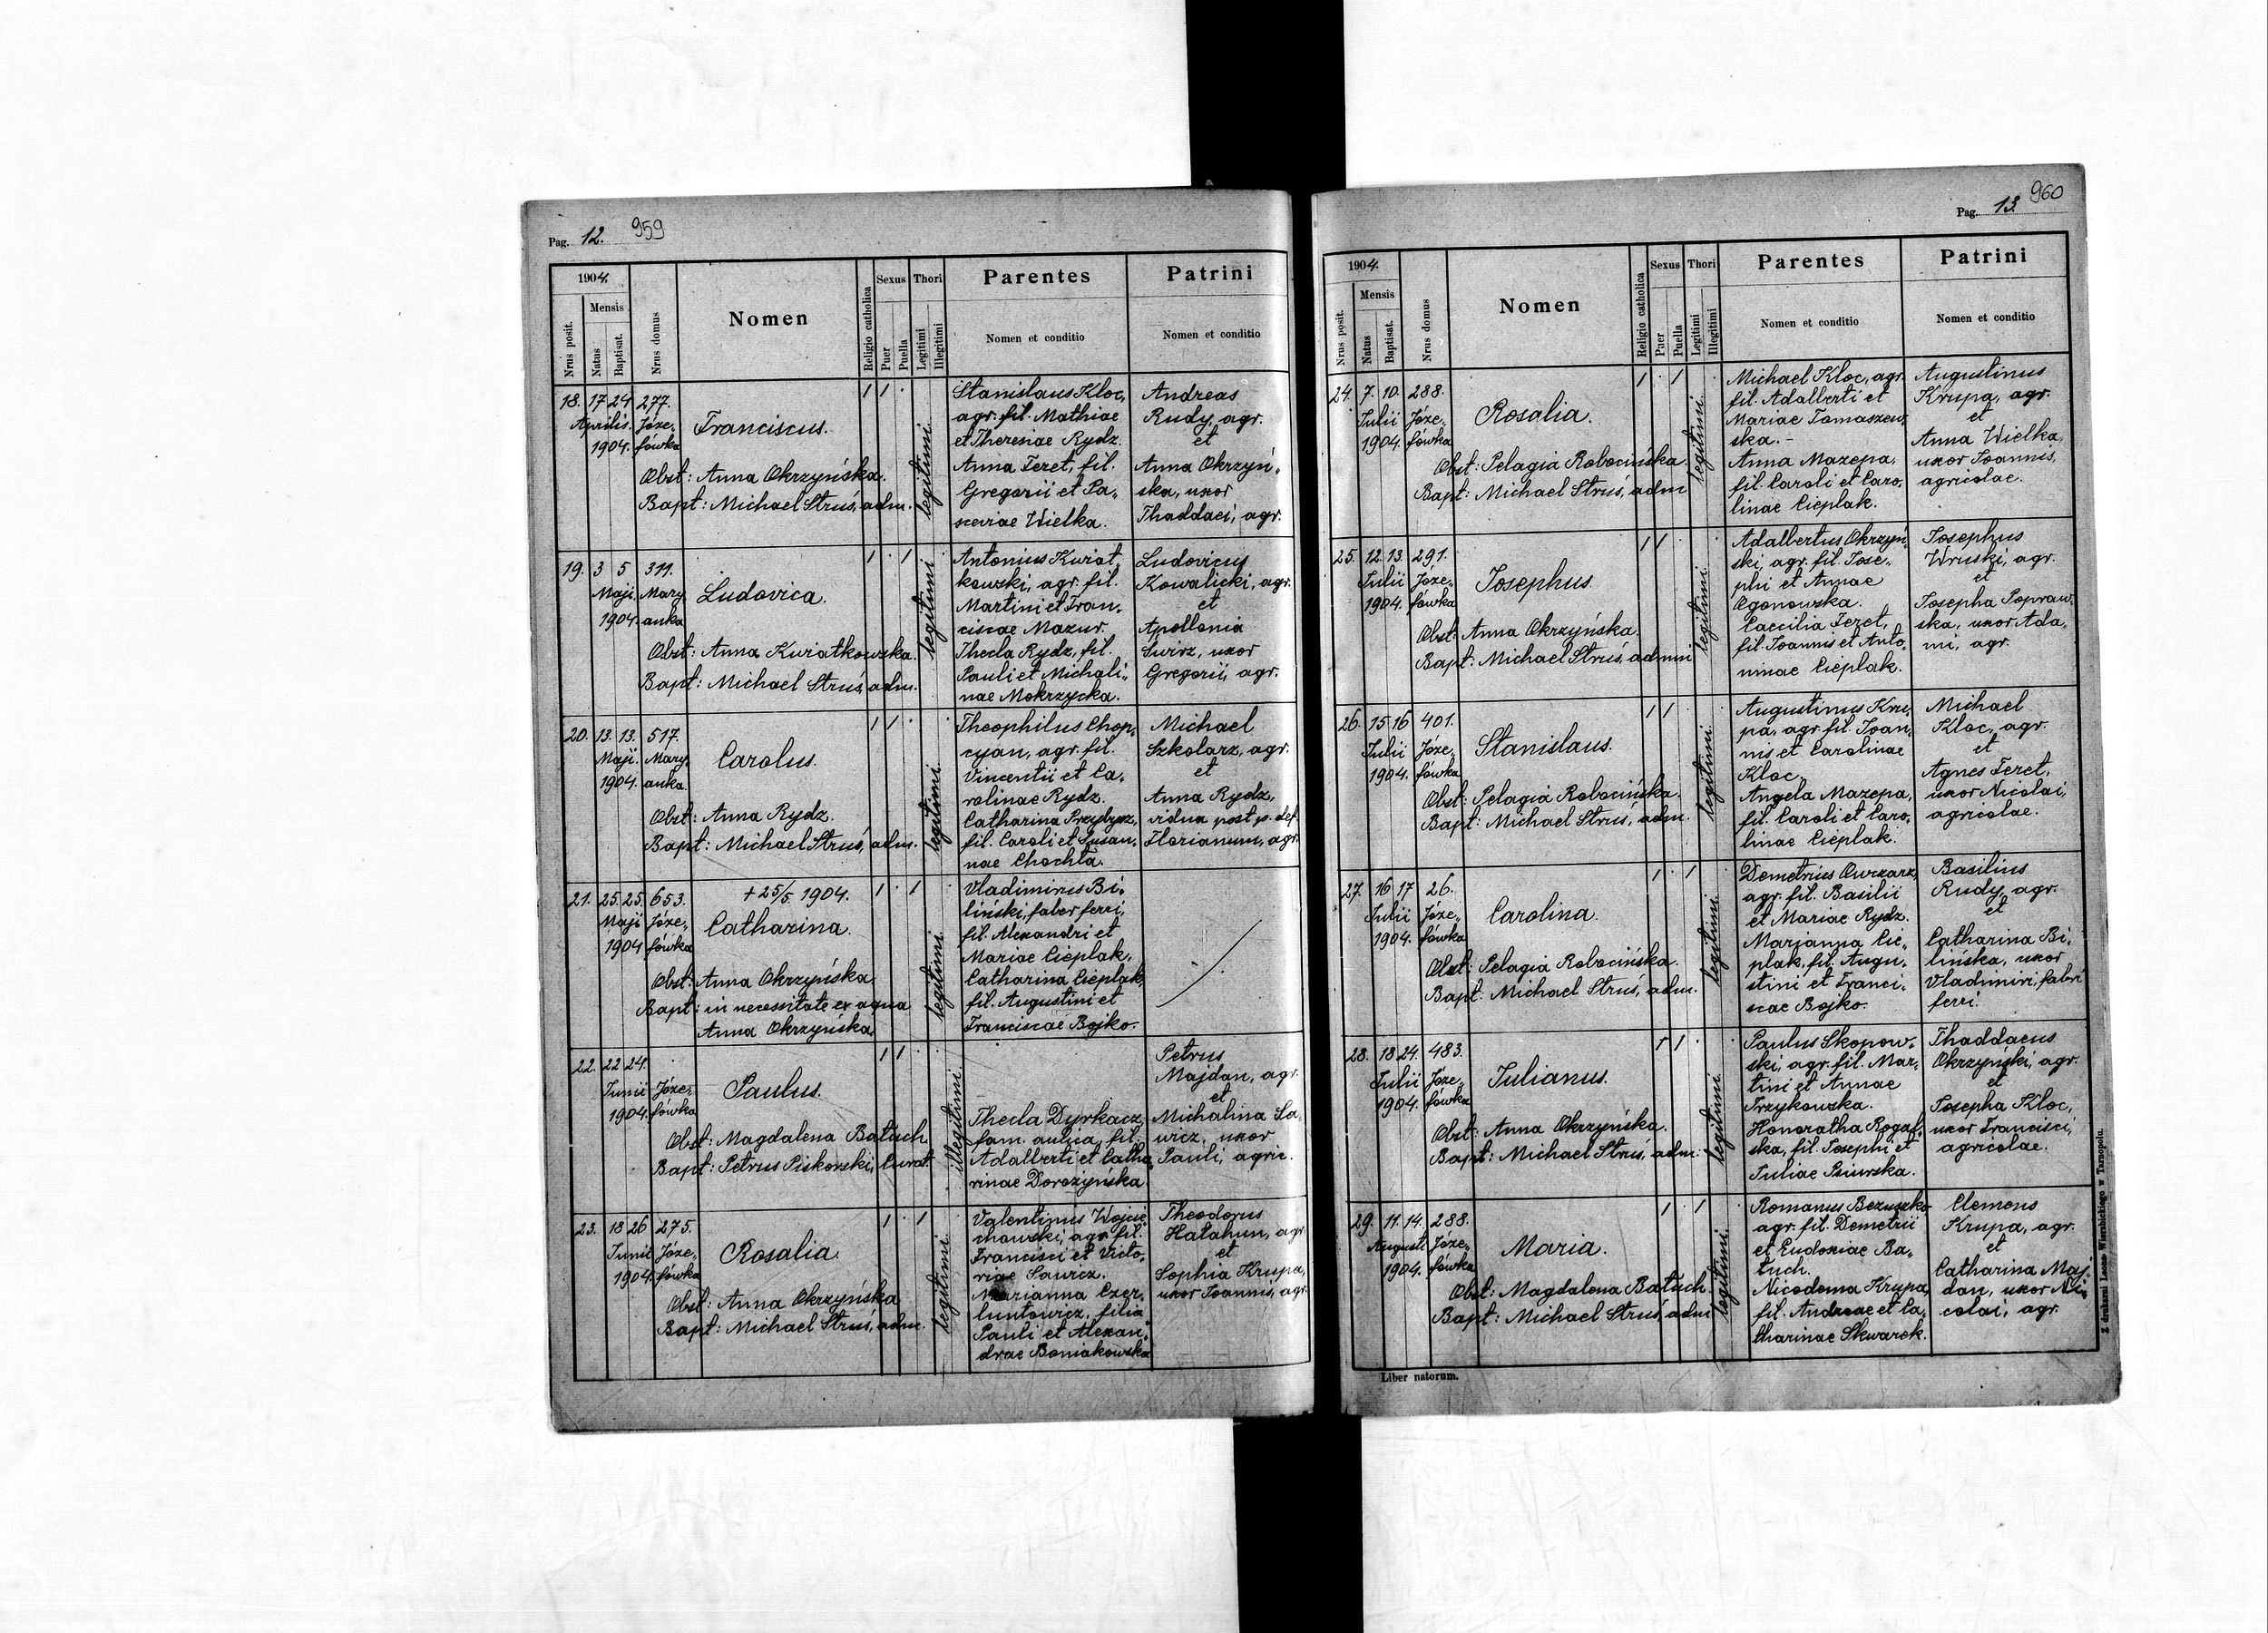 Pag. 12. 959
1904.
Nrus posit.
Mensis
Natus
Baptisat.
Nrus domus
Nomen
Religio catholica
Sexus
Puer
Puella
Thori
Legitimi
Illegitimi
Parentes
Nomen et conditio
Patrini
Nomen et conditio
18. 17 24 277.
Aprilis. Józe„
1904. fówka
Franciscus.
Obst: Anna Okrzyńska.
Bapt: Michael Struś, adm.
1 1 .
legitimi.
Stanislaus Kloc,
agr. fil. Mathiae
et Theresiae Rydz.
Anna Feret, fil.
Gregorii et Pa„
sceviae Wielka.
Andreas
Rudy, agr.
et
Anna Okrzyń„
ska, uxor
Thaddaei, agr.
19. 3 5 311.
Maji. Mary
1904. anka
Ludovica.
Obst: Anna Kwiatkowska.
Bapt: Michael Struś, adm.
1 . 1
legitimi
Antonius Kwiat„
kowski, agr. fil.
Martini et Fran„
ciscae Mazur.
Thecla Rydz, fil.
Pauli et Michali„
nae Mokrzycka.
Ludovicus
Kowalicki, agr.
et
Apollonia
Świrz, uxor
Gregorii, agr.
20. 13. 13. 517.
Maji. Mary„
1904. anka.
Carolus.
Obst: Anna Rydz.
Bapt: Michael Struś, adm.
1 1 .
legitimi.
Theophilus Chop„
cyan, agr. fil.
Vincentii et Ca„
rolinae Rydz.
Catharina Przybysz,
fil. Caroli et Susan„
nae Chochla.
Michael
Szkolarz, agr.
et
Anna Rydz,
vidua post p. def.
Florianum, agr.
21. 25. 25. 653.
Maji Józe„
1904 fówka
+ 25/5 1904.
Catharina.
Obst: Anna Okrzyńska
Bapt: in necessitate ex aqua
Anna Okrzyńska,
1 . 1
legitimi.
Vladimirus Bi„
liński, faber ferri,
fil. Alexandri et
Mariae Cieplak.
Catharina Cieplak,
fil. Augustini et
Franciscae Bojko.
22. 22 24.
Junii Józe„
1904. fówka
Paulus.
Obst: Magdalena Batuch
Bapt: Petrus Piskorski, Curat.
1 1 .
illegitimi.
Thecla Dyrkacz
fam. aulica, fil.
Adalberti et Catha„
rinae Dorożyńska
Petrus
Majdan, agr.
et
Michalina Sa„
wicz, uxor
Pauli, agric.
23. 18 26 275.
Junii Józe„
1904. fówka
Rosalia.
Obst: Anna Okrzyńska
Bapt: Michael Struś, adm.
1 . 1
legitimi.
Valentinus Wojcie„
chowski, agr. fil.
Francisci et Victo„
riae Sawicz.
Marianna Czer„
luntowicz, filia
Pauli et Alexan„
drae Boniakowska
Theodorus
Hałahun, agr.
et
Sophia Krupa,
uxor Joannis, agr.
Pag. 13. 960
1904.
Nrus posit.
Mensis
Natus
Baptisat.
Nrus domus
Nomen
Religio catholica
Sexus
Puer
Puella
Thori
Legitimi
Illegitimi
Parentes
Nomen et conditio
Patrini
Nomen et conditio
24. 7. 10. 288.
Julii Józe„
1904. fówka
Rosalia.
Obst: Pelagia Robocińska.
Bapt: Michael Struś, adm
1 . 1
legitimi.
Michael Kloc, agr.
fil. Adalberti et
Mariae Tomaszew„
ska. -
Anna Mazepa,
fil. Caroli et Caro„
linae Cieplak.
Augustinus
Krupa, agr.
et
Anna Wielka,
uxor Joannis,
agricolae.
25. 12. 13. 291.
Julii Józe„
1904. fówka
Josephus.
Obst: Anna Okrzyńska.
Bapt: Michael Struś, admni
1 1 .
legitimi.
Adalbertus Okrzyń„
ski, agr. fil. Jose„
phi et Annae
Ogonowska.
Caecilia Feret,
fil. Joannis et Anto„
ninae Cieplak.
Josephus
Wruski, agr.
et
Josepha Popraw„
ska, uxor Ada„
mi, agr.
26. 15 16 401.
Julii Józe„
1904. fówka
Stanislaus.
Obst: Pelagia Robocińska.
Bapt: Michael Struś, adm.
1 1
legitimi.
Augustinus Kru„
pa, agr. fil. Joan„
nis et Carolinae
Kloc.
Angela Mazepa,
fil. Caroli et Caro„
linae Cieplak.
Michael
Kloc, agr.
et
Agnes Feret,
uxor Nicolai,
agricolae.
27. 16 17 26.
Julii Józe„
1904. fówka
Carolina.
Obst: Pelagia Robocińska.
Bapt: Michael Struś, adm.
1 . 1
legitimi.
Demetrius Owczarz,
agr. fil. Basilii
et Mariae Rydz.
Marianna Cie„
plak, fil. Augu„
stini et Franci„
scae Bojko.
Basilius
Rudy, agr.
et
Catharina Bi„
lińska, uxor
Vladimiri, fabri
ferri.
28. 18 24. 483.
Julii Józe„
1904. fówka
Julianus.
Obst: Anna Okrzyńska.
Bapt: Michael Struś, adm.
1 1 .
legitimi.
Paulus Skopow„
ski, agr. fil. Mar„
tini et Annae
Przykowska.
Honoratha Rogal„
ska, fil. Josephi et
Juliae Psiurska.
Thaddaeus
Okrzyński, agr.
et
Josepha Kloc,
uxor Francisci,
agricolae.
29. 11. 14. 288.
Augusti Józe„
1904. fówka
Maria.
Obst: Magdalena Batuch
Bapt: Michael Struś, adm
1 . 1
legitimi.
Romanus Bezuszko
agr. fil. Demetrii
et Eudoxiae Ba„
tuch.
Nicodema Krupa,
fil. Andreae et Ca„
tharinae Skwarek.
Clemens
Krupa, agr.
et
Catharina Maj„
dan, uxor Ni„
colai, agr.
Liber natorum.
Z drukarni Leona Wierzbickiego w Tarnopolu.